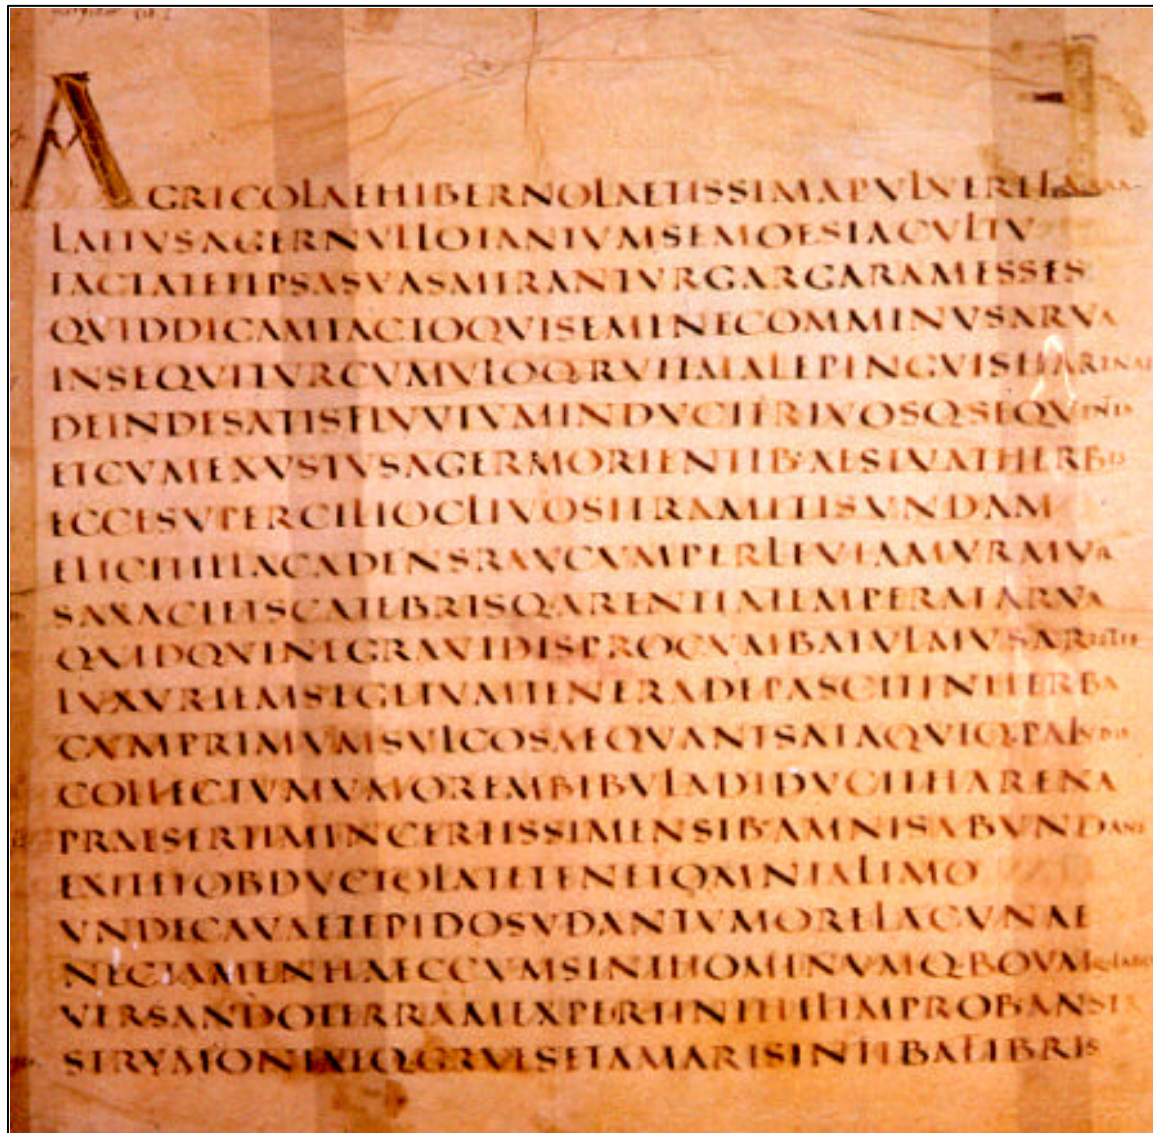 AGRICOLAEHIBERNOLAETISSIMAPVLVEREFARRA
LAETVSAGERNVLLOTANTVMSEMOESIACVLTV
IACTATETIPSASVASMIRANTVRGARGARAMESSES
QVIDDICAMIACTOQVISEMINECOMMINVSARVA
INSEQVITVRCVMVLOQ·RVITMALEPINGVISHARENAE
DEINDESATISFLVVIVMINDVCITRIVOSQ·SEQVENTIS
ETCVMEXVSTVSAGERMORIENTIB·AESTVATHERBIS
ECCESVPERCILIOCLIVOSITRAMITISVNDAM
ELICITILLACADENSRAVCVMPERLEVIAMVRMVR
SAXACIETSCATEBRISQ·ARENTIATEMPERATARVA
QVIDQVINEGRAVIDISPROCVMBATVLMVSARISTIS
LVXVRIEMSEGETVMTENERADEPASCITINHERBA
CVMPRIMVMSVLCOSAEQVANTSATAQVIQ·PALVDIS
COLLECTVMVMOREMBIBVLADIDVCITHARENA
PRAESERTIMINCERTISSIMENSIB·AMNISABVNDANS
EXITETOBDVCTOLATETENETOMNIALIMO
VNDECAVAETEPIDOSVDANTVMORELACVNAE
NECTAMENHAECCVMSINTHOMINVMQ·BOVMQ·LABORES
VERSANDOTERRAMEXPERTINIHILIMPROBANSER
STRYMONIAEQ·GRVESETAMARISINTIBAFIBRIS